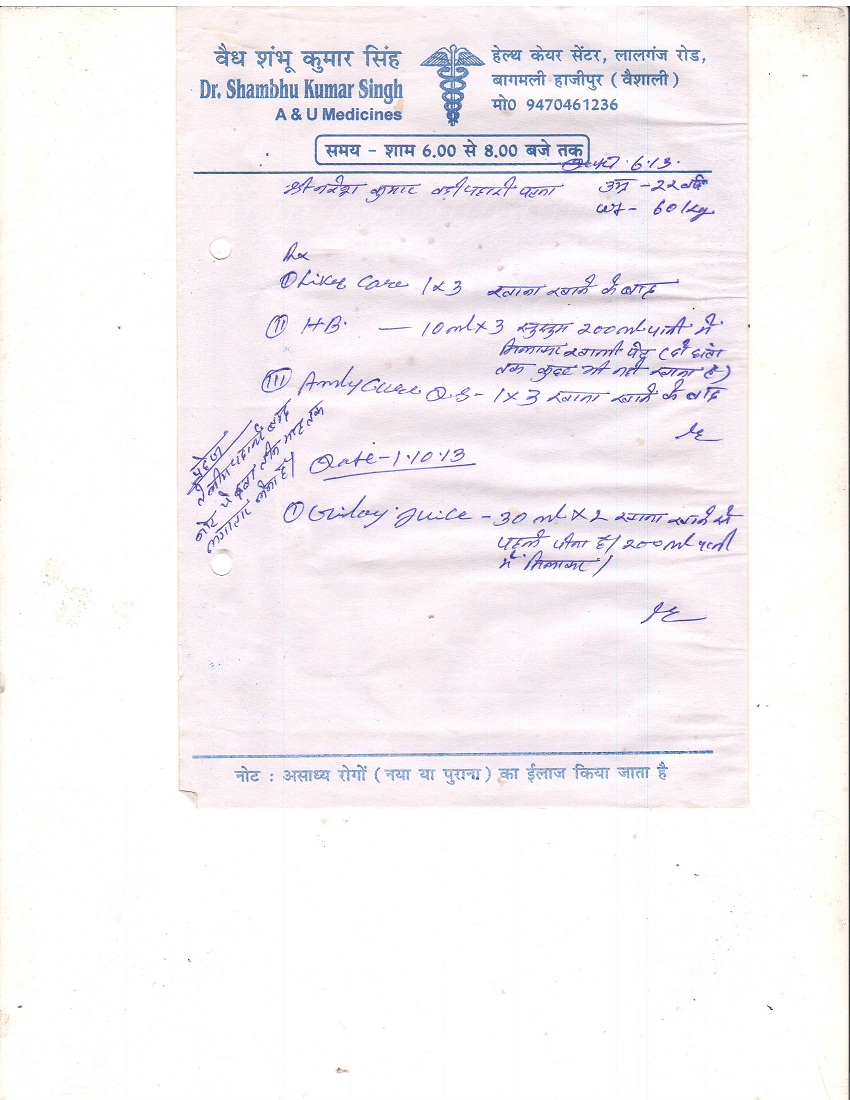 वैध शंभू कुमार सिंह
Dr. Shambhu Kumar Singh
A & U Medicines
हेल्थ केयर सेंटर, लालगंज रोड,
बागमली हाजीपुर ( वैशाली )
मो0 9470461236
समय - शाम 6.00 से 8.00 बजे तक
6.13.
श्री नरेश कुमार बड़ी पहाड़ी पटना
उम्र - 22 वर्ष
wt - 60 kg
Rx
① Liver Care 1 x 3 खाना खाने के बाद
② HB. — 10ml x 3 200ml पानी में
मिलाकर खाली पेट (दो घंटा
तक कुछ भी नहीं खाना है)
③ Amly Cure D.S - 1 x 3 खाना खाने के बाद
परहेज
लगातार लेना है।
Date - 1.10.13
① Giloy Juice - 30 ml x 2 खाना खाने से
पहले पीना है। 200ml पानी
में मिलाकर।
नोट : असाध्य रोगों ( नया या पुराना ) का ईलाज किया जाता है